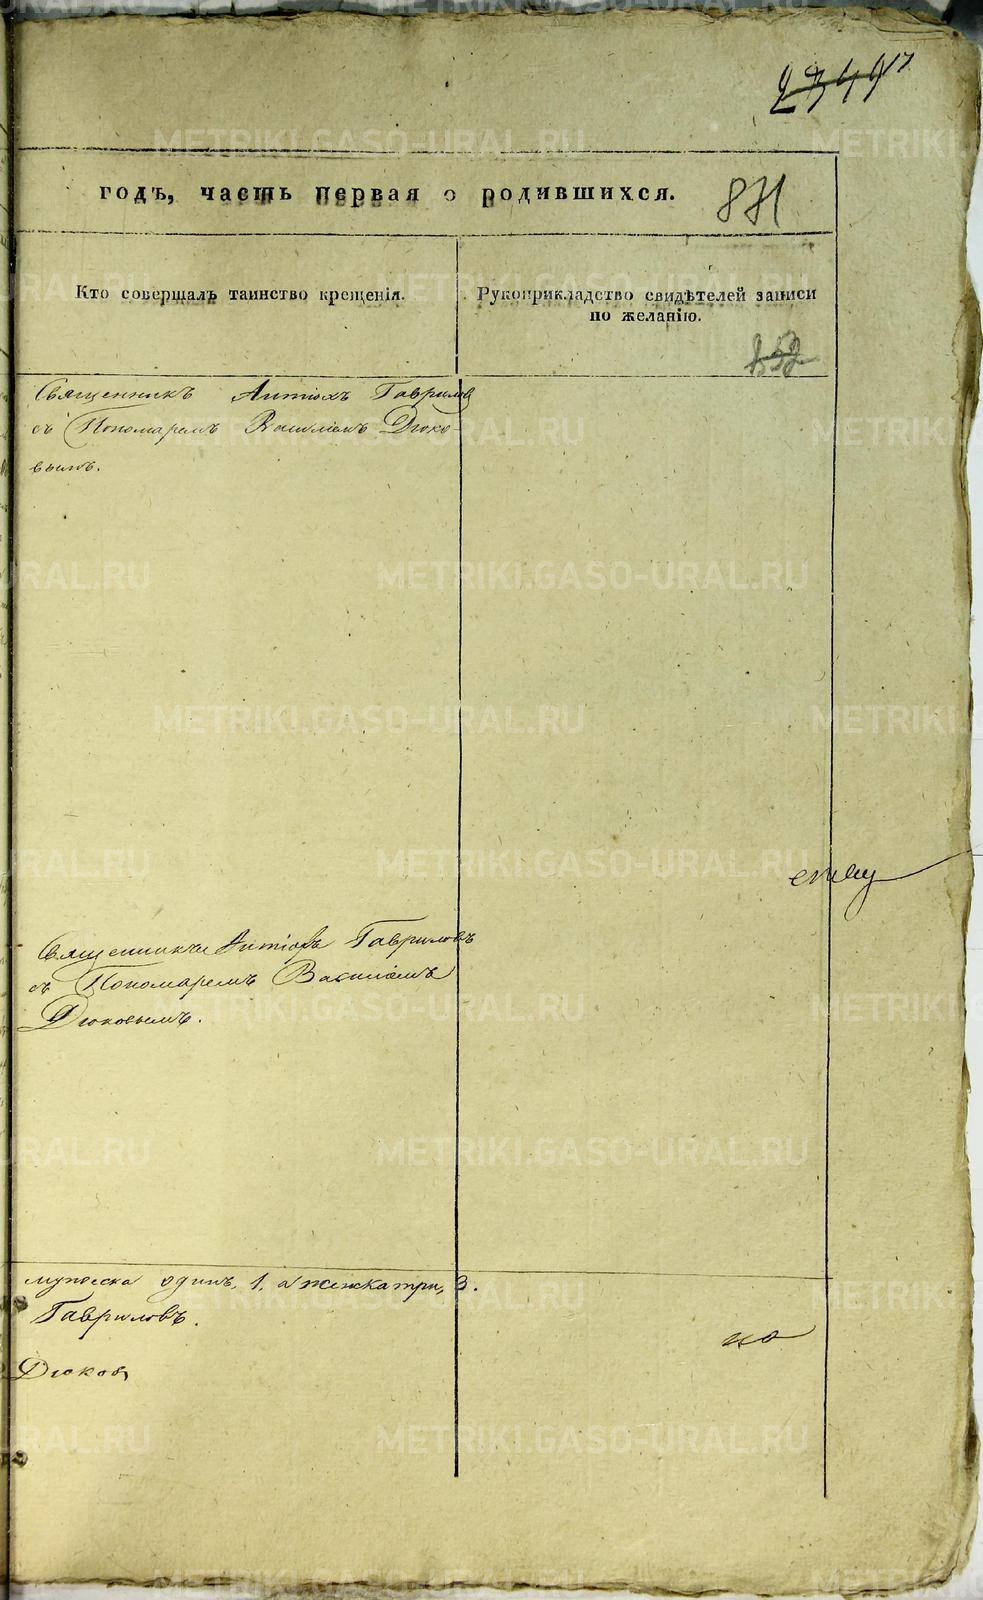 годъ, часть первая о родившихся.
871
Кто совершалъ таинство крещенія.
Рукоприкладство свидѣтелей записи
по желанію.
852
Священникъ Антіохъ Гаврилов
съ Пономаремъ Василіемъ Дюко-
вымъ.
Священникъ Антіохъ Гавриловъ
съ Пономаремъ Василіемъ
Дюковымъ.
мужеска одинъ, 1, а женска три, 3.
Гавриловъ.
Дюковъ
но
METRIKI.GASO-URAL.RU